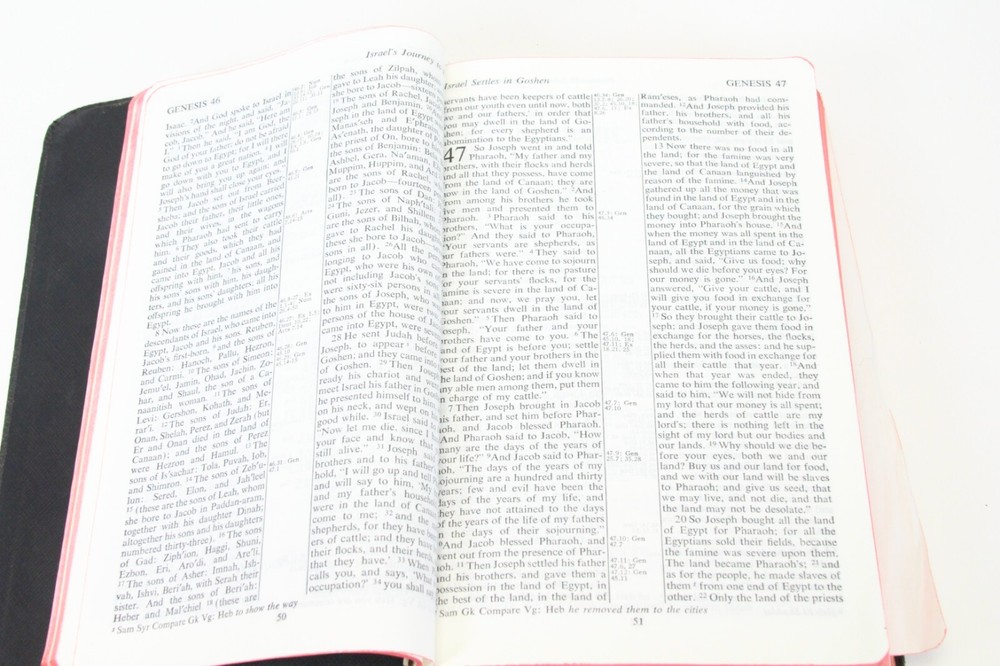 Israel's Journey
GENESIS 46
Israel. ²And God spoke to Israel in
visions of the night, and said, "Ja-
cob, Jacob." And he said, "Here am
I." ³Then he said, "I am God, the
God of your father; do not be afraid
to go down to Egypt; for I will there
make of you a great nation. ⁴I will
go down with you to Egypt, and I
will also bring you up again; and
Joseph's hand shall close your eyes."
⁵Then Jacob set out from Beer-
sheba; and the sons of Israel carried
Jacob their father, their little ones,
and their wives, in the wagons
which Pharaoh had sent to carry
him. ⁶They also took their cattle
and their goods, which they had
gained in the land of Canaan, and
came into Egypt, Jacob and all his
offspring with him, ⁷his sons, and
his sons' sons with him, his daugh-
ters, and his sons' daughters; all his
offspring he brought with him into
Egypt.
8 Now these are the names of the
descendants of Israel, who came into
Egypt, Jacob and his sons. Reuben,
Jacob's first-born, ⁹and the sons of
Reuben: Hanoch, Pallu, Hezron,
and Carmi. ¹⁰The sons of Simeon:
Jemu'el, Jamin, Ohad, Jachin, Zo-
har, and Shaul, the son of a Ca-
naanitish woman. ¹¹The sons of
Levi: Gershon, Kohath, and Me-
rar'i. ¹²The sons of Judah: Er,
Onan, Shelah, Perez, and Zerah (but
Er and Onan died in the land of
Canaan); and the sons of Perez
were Hezron and Hamul. ¹³The
sons of Is'sachar: Tola, Puvah, Iob,
and Shimron. ¹⁴The sons of Zeb'u-
lun: Sered, Elon, and Jah'leel
¹⁵(these are the sons of Leah, whom
she bore to Jacob in Paddan-aram,
together with his daughter Dinah;
altogether his sons and his daughters
numbered thirty-three). ¹⁶The sons
of Gad: Ziph'ion, Haggi, Shuni,
Ezbon, Eri, Aro'di, and Are'li.
¹⁷The sons of Asher: Imnah, Ish-
vah, Ishvi, Beri'ah, with Serah their
sister. And the sons of Beri'ah:
Heber and Mal'chiel ¹⁸(these are
the sons of Zilpah, whom
gave to Leah his daughter
she bore to Jacob—sixteen
¹⁹The sons of Rachel, Jac
Joseph and Benjamin. ²⁰
seph in the land of Egypt
Manas'seh and E'phra
As'enath, the daughter of
the priest of On, bore to
the sons of Benjamin: Be
Ashbel, Gera, Na'aman,
Muppim, Huppim, and Ar
are the sons of Rachel,
born to Jacob—fourteen
all). ²³The sons of Dan
²⁴The sons of Naph'tali
Guni, Jezer, and Shillem
are the sons of Bilhah, wh
gave to Rachel his dau
these she bore to Jacob
sons in all). ²⁶All the pe
longing to Jacob who
Egypt, who were his own
not including Jacob's son
were sixty-six persons in
the sons of Joseph, who w
to him in Egypt, were two
persons of the house of Ja
came into Egypt, were se
28 He sent Judah before
Joseph, to appear before
Goshen; and they came int
of Goshen. ²⁹Then Josep
ready his chariot and wen
meet Israel his father in Go
he presented himself to him
on his neck, and wept on
good while. ³⁰Israel said t
"Now let me die, since I
your face and know tha
still alive." ³¹Joseph said
brothers and to his father'
hold, "I will go up and tell
and will say to him, 'My
and my father's househo
were in the land of Cana
come to me; ³²and the m
shepherds, for they have b
ers of cattle; and they have
their flocks, and their herds
that they have.' ³³When
calls you, and says, 'What
occupation?' ³⁴you shall
Sam Syr Compare Gk Vg: Heb to show the way
50
Israel Settles in Goshen
GENESIS 47
servants have been keepers of cattle
from our youth even until now, both
we and our fathers,' in order that
you may dwell in the land of Go-
shen; for every shepherd is an
abomination to the Egyptians."
47 So Joseph went in and told
Pharaoh, "My father and my
brothers, with their flocks and herds
and all that they possess, have come
from the land of Canaan; they are
now in the land of Goshen." ²And
from among his brothers he took
five men and presented them to
Pharaoh. ³Pharaoh said to his
brothers, "What is your occupa-
tion?" And they said to Pharaoh,
"Your servants are shepherds, as
our fathers were." ⁴They said to
Pharaoh, "We have come to sojourn
in the land; for there is no pasture
for your servants' flocks, for the
famine is severe in the land of Ca-
naan; and now, we pray you, let
your servants dwell in the land of
Goshen." ⁵Then Pharaoh said to
Joseph, "Your father and your
brothers have come to you. ⁶The
land of Egypt is before you; settle
your father and your brothers in the
best of the land; let them dwell in
the land of Goshen; and if you know
any able men among them, put them
in charge of my cattle."
7 Then Joseph brought in Jacob
his father, and set him before Phar-
aoh, and Jacob blessed Pharaoh.
⁸And Pharaoh said to Jacob, "How
many are the days of the years of
your life?" ⁹And Jacob said to Phar-
aoh, "The days of the years of my
sojourning are a hundred and thirty
years; few and evil have been the
days of the years of my life, and
they have not attained to the days
of the years of the life of my fathers
in the days of their sojourning."
¹⁰And Jacob blessed Pharaoh, and
went out from the presence of Phar-
aoh. ¹¹Then Joseph settled his father
and his brothers, and gave them a
possession in the land of Egypt, in
the best of the land, in the land of
47.7: Gen
47.10.
47.9: Gen
25.7; 35.28
47.10: Gen
47.7
47.11: Gen
47.6, 27
Ram'eses, as Pharaoh had com-
manded. ¹²And Joseph provided his
father, his brothers, and all his
father's household with food, ac-
cording to the number of their de-
pendents.
13 Now there was no food in all
the land; for the famine was very
severe, so that the land of Egypt and
the land of Canaan languished by
reason of the famine. ¹⁴And Joseph
gathered up all the money that was
found in the land of Egypt and in the
land of Canaan, for the grain which
they bought; and Joseph brought the
money into Pharaoh's house. ¹⁵And
when the money was all spent in the
land of Egypt and in the land of Ca-
naan, all the Egyptians came to Jo-
seph, and said, "Give us food; why
should we die before your eyes? For
our money is gone." ¹⁶And Joseph
answered, "Give your cattle, and I
will give you food in exchange for
your cattle, if your money is gone."
¹⁷So they brought their cattle to Jo-
seph; and Joseph gave them food in
exchange for the horses, the flocks,
the herds, and the asses: and he sup-
plied them with food in exchange for
all their cattle that year. ¹⁸And
when that year was ended, they
came to him the following year, and
said to him, "We will not hide from
my lord that our money is all spent;
and the herds of cattle are my
lord's; there is nothing left in the
sight of my lord but our bodies and
our lands. ¹⁹Why should we die be-
fore your eyes, both we and our
land? Buy us and our land for food,
and we with our land will be slaves
to Pharaoh; and give us seed, that
we may live, and not die, and that
the land may not be desolate."
20 So Joseph bought all the land
of Egypt for Pharaoh; for all the
Egyptians sold their fields, because
the famine was severe upon them.
The land became Pharaoh's; ²¹and
as for the people, he made slaves of
them from one end of Egypt to the
other. ²²Only the land of the priests
Sam Gk Compare Vg: Heb he removed them to the cities
51